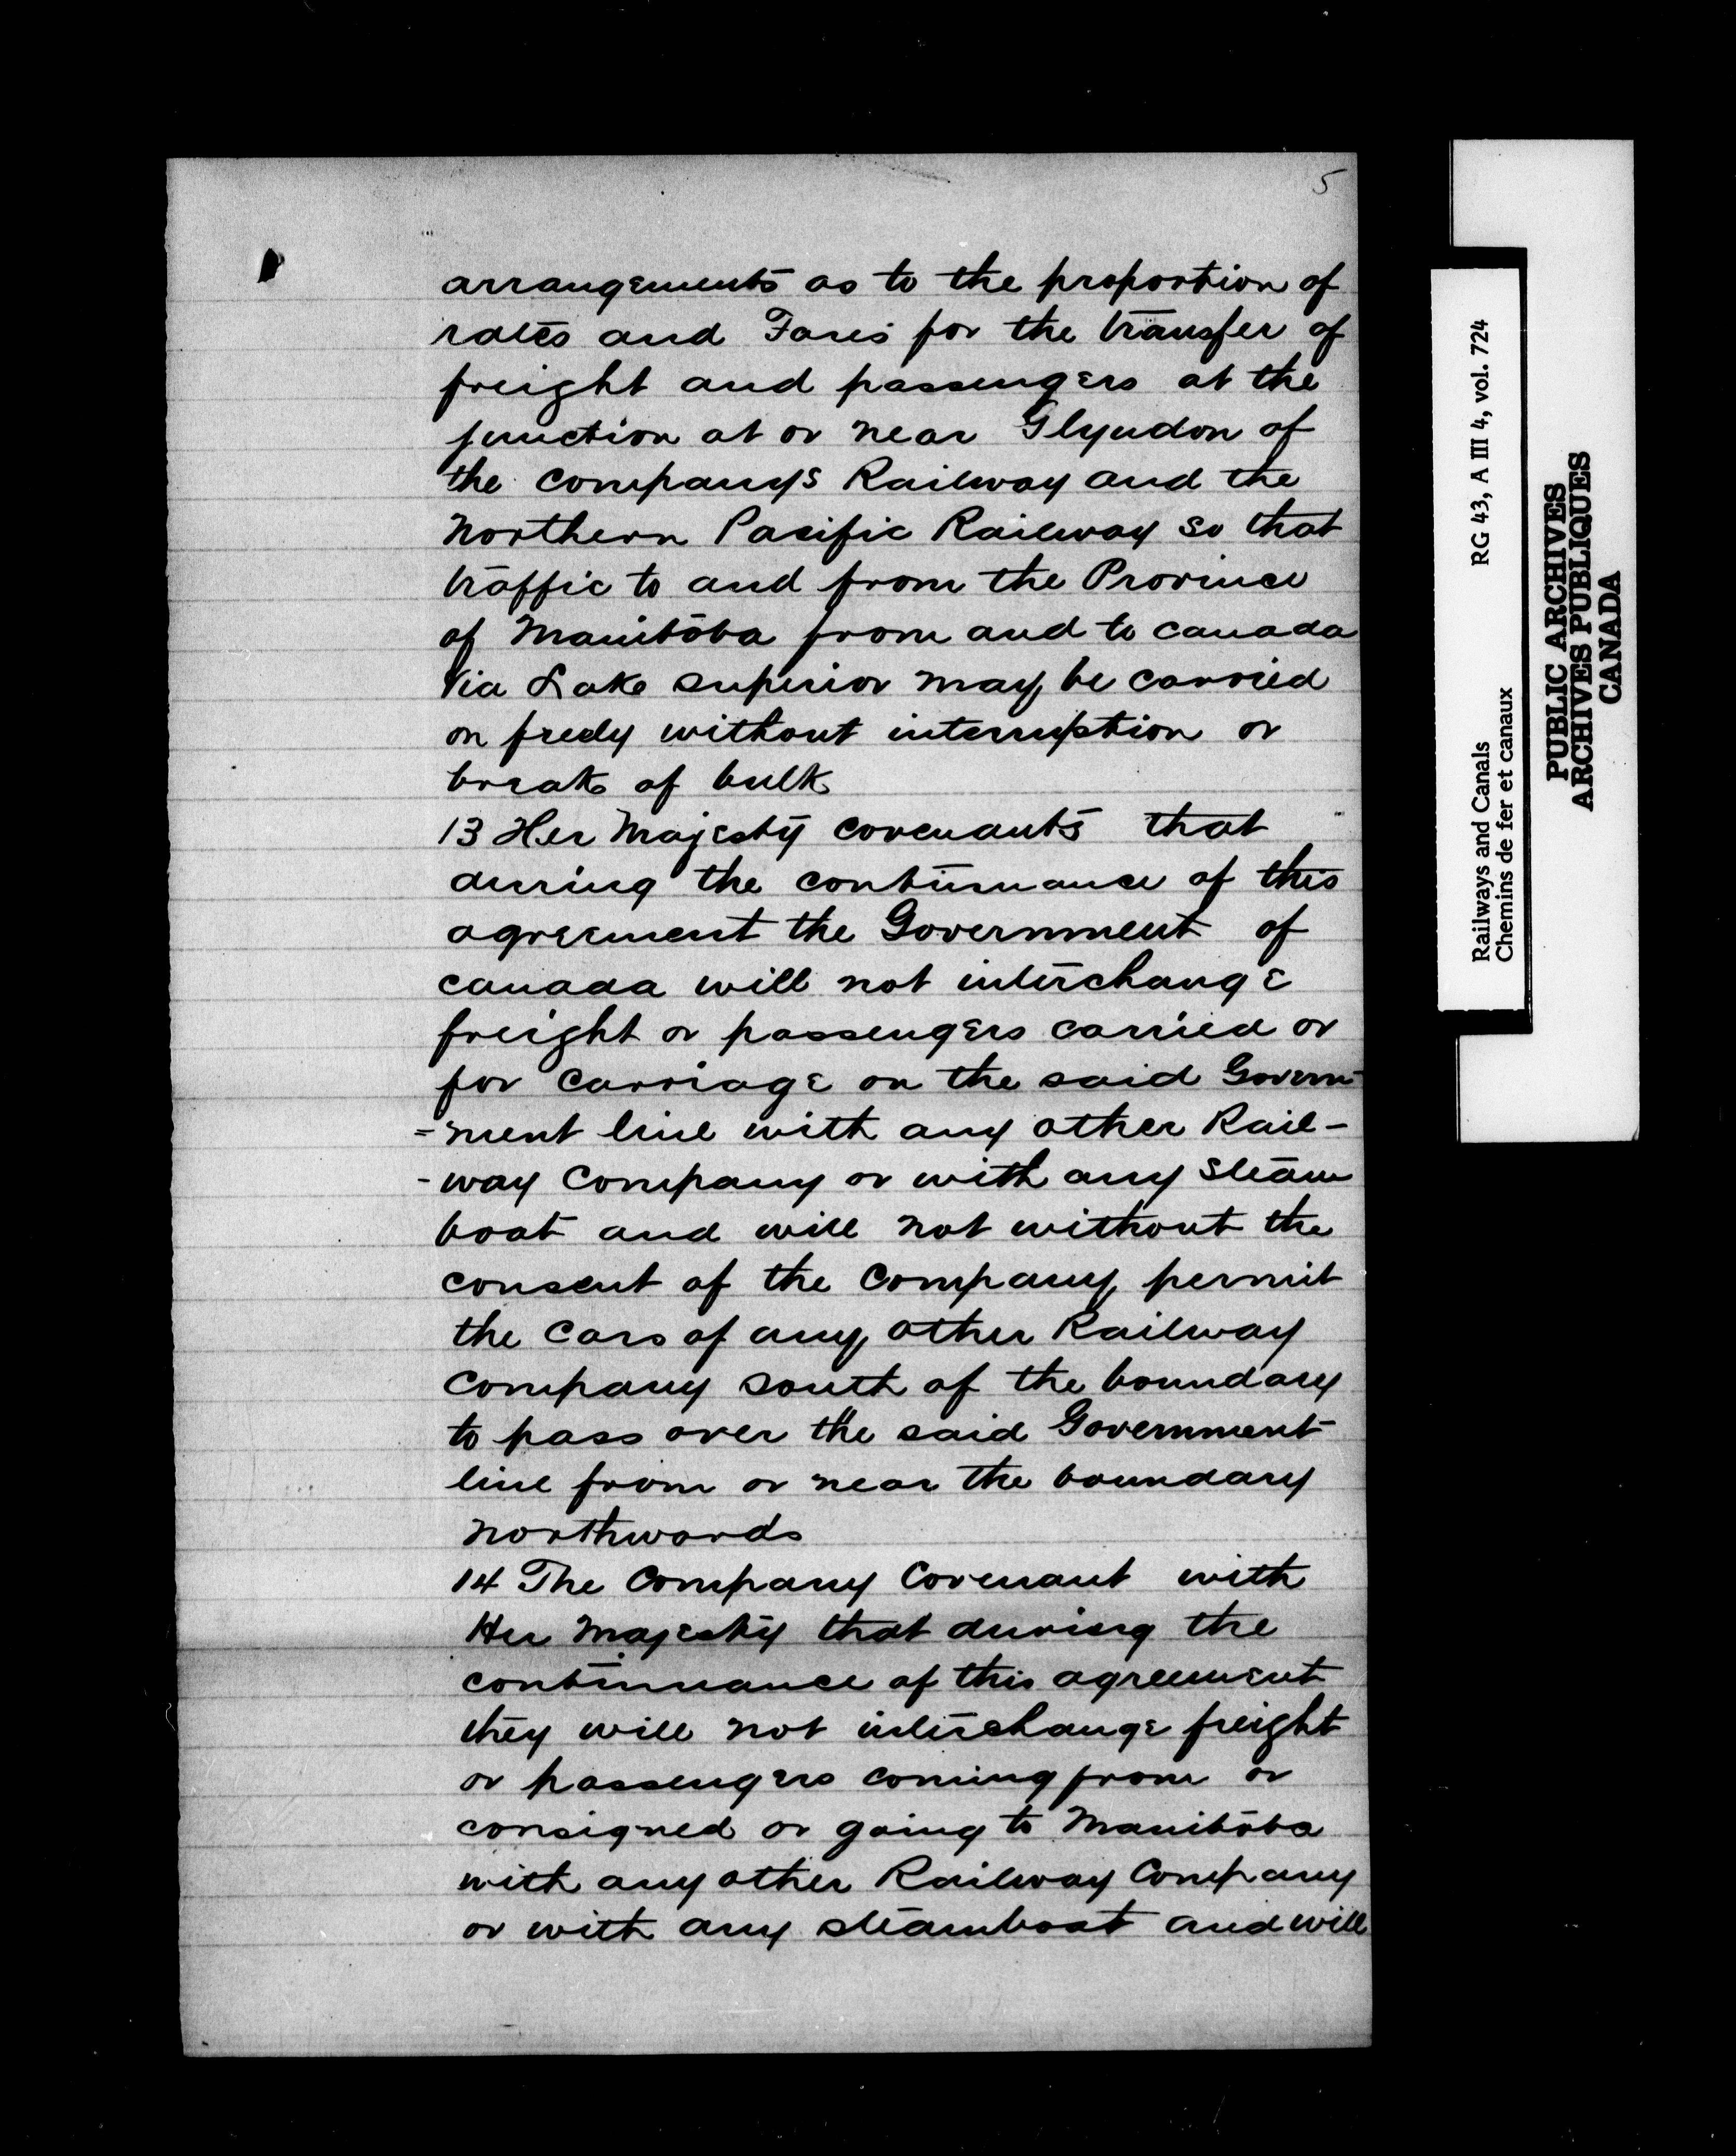 5
arrangements as to the proportion of
rates and Fares for the transfer of
freight and passengers at the
junction at or near Glyndon of
the Companys Railway and the
Northern Pacific Railway so that
traffic to and from the Province
of Manitoba from and to Canada
Via Lake Superior may be carried
on freely without interruption or
break of bulk
13 Her Majesty covenants that
during the continuance of this
agreement the Government of
Canada will not interchange
freight or passengers carried or
for carriage on the said Govern-
=ment line with any other Rail-
-way Company or with any Steam
boat and will not without the
consent of the Company permit
the Cars of any other Railway
Company south of the boundary
to pass over the said Government
line from or near the boundary
northwards
14 The Company Covenant with
Her Majesty that during the
continuance of this agreement
they will not interchange freight
or passengers coming from or
consigned or going to Manitoba
with any other Railway Company
or with any steamboat and will
Railways and Canals RG 43, A III 4, vol. 724
Chemins de fer et canaux
PUBLIC ARCHIVES
ARCHIVES PUBLIQUES
CANADA